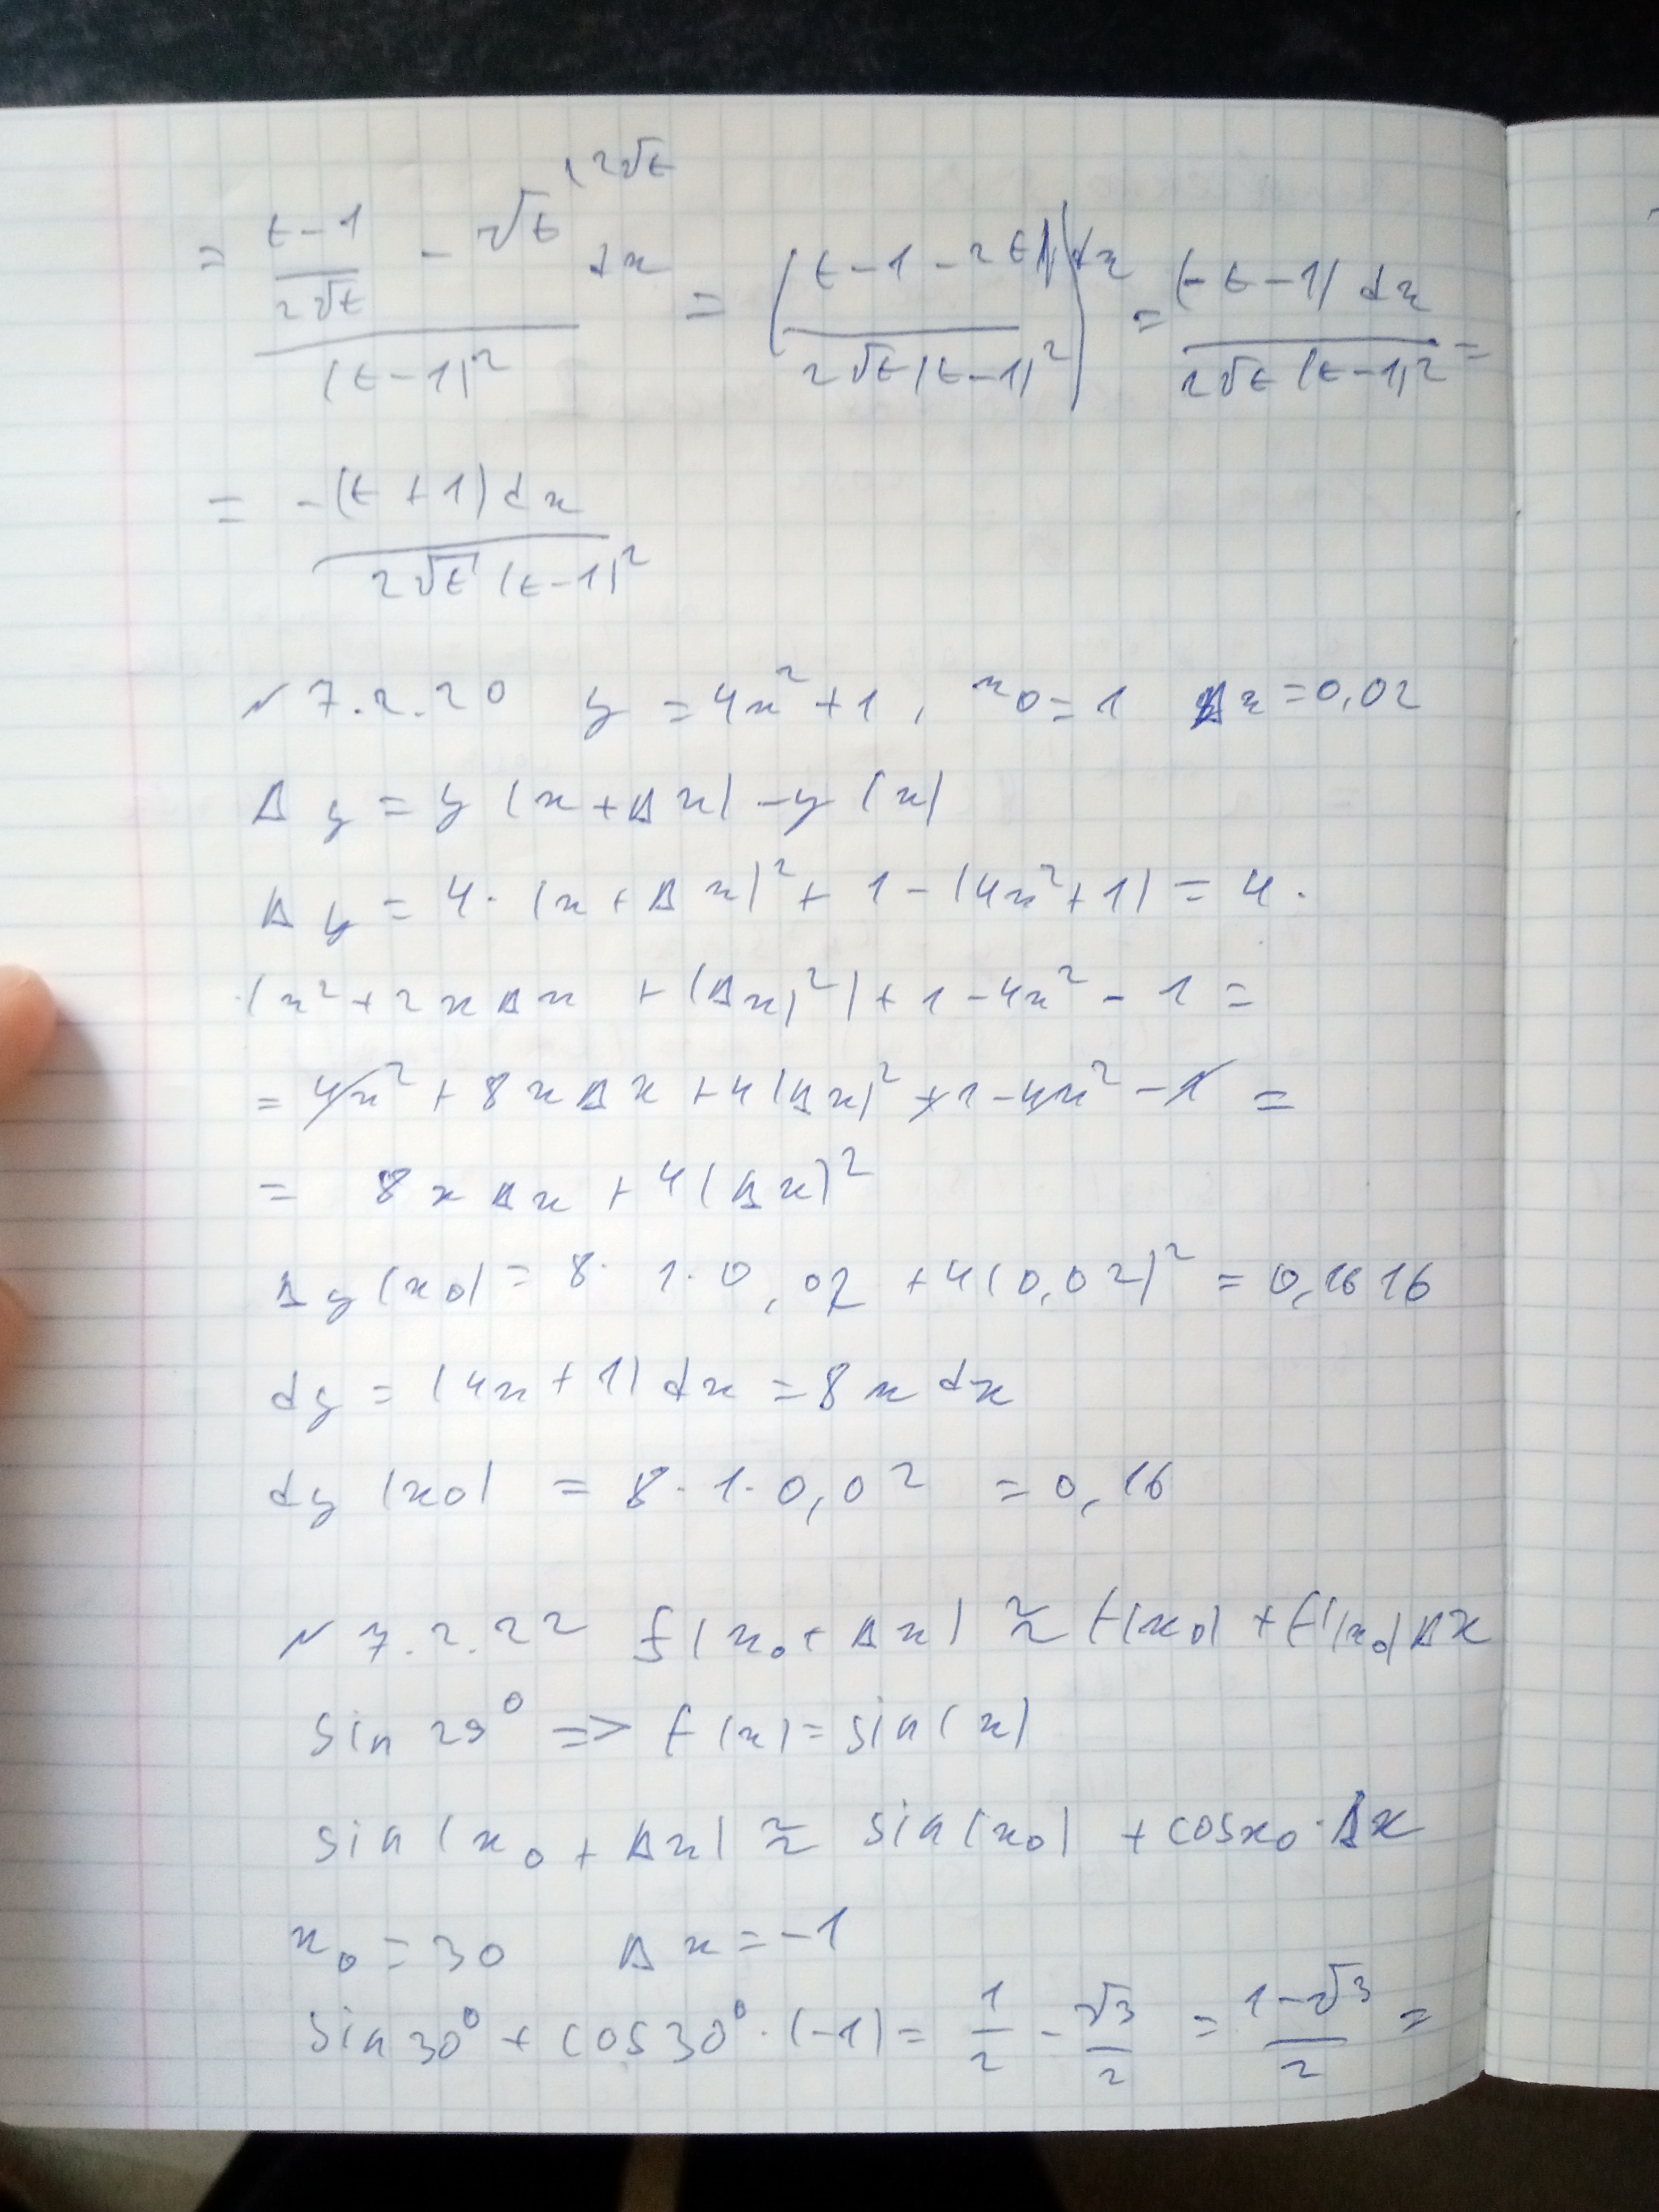 = ((t-1)/(2√t) - √t (2√t) dx)/(t-1)² = ((t-1-2t)/(2√t(t-1)²)) dx = (-t-1) dx/(2√t(t-1)²) =
= -(t+1)dx/(2√t(t-1)²)
N 7.2.20 y = 4x²+1, x₀ = 1 Δx = 0,02
Δy = y(x+Δx) - y(x)
Δy = 4·(x+Δx)² + 1 - (4x²+1) = 4·
·(x²+2xΔx + (Δx)²) + 1 - 4x² - 1 =
= 4x² + 8xΔx + 4(Δx)² + 1 - 4x² - 1 =
= 8xΔx + 4(Δx)²
Δy(x₀) = 8·1·0,02 + 4(0,02)² = 0,1616
dy = (4x+1)dx = 8x dx
dy(x₀) = 8·1·0,02 = 0,16
N 7.2.22 f(x₀+Δx) ≈ f(x₀) + f'(x₀)Δx
sin 29° => f(x) = sin(x)
sin(x₀+Δx) ≈ sin(x₀) + cosx₀·Δx
x₀ = 30 Δx = -1
sin30° + cos30°·(-1) = 1/2 - √3/2 = (1-√3)/2 =